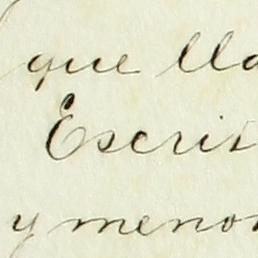 que lla
Escrit
y menor